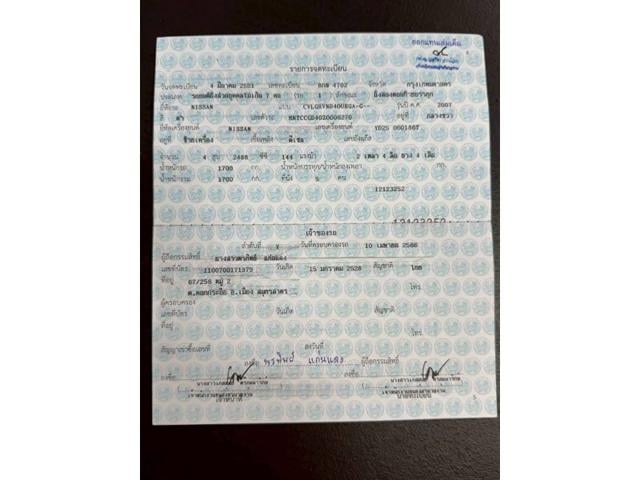 ออกแทนเล่มเดิม
รายการจดทะเบียน
วันจดทะเบียน 4 มีนาคม 2551 เลขทะเบียน 4702 จังหวัด กรุงเทพมหานคร
ประเภท รถยนต์นั่งส่วนบุคคลไม่เกิน 7 คน รย. 1 ลักษณะ นั่งสองตอนท้ายบรรทุก
ยี่ห้อรถ NISSAN แบบ รุ่นปี ค.ศ. 2007
สี ดำ เลขตัวรถ อยู่ที่ กลางขวา
ยี่ห้อเครื่องยนต์ NISSAN เลขเครื่องยนต์ YD25
อยู่ที่ ข้างเครื่อง เชื้อเพลิง ดีเซล เลขถังแก๊ส
จำนวน 4 สูบ 2488 ซีซี 144 แรงม้า 2 เพลา 4 ล้อ ยาง 4 เส้น
น้ำหนักรถ 1700 กก. น้ำหนักบรรทุก/น้ำหนักลงเพลา กก.
น้ำหนักรวม 1700 กก. ที่นั่ง 5 คน
12123252
เจ้าของรถ
ลำดับที่ วันที่ครอบครองรถ 10 เมษายน 2566
ผู้ถือกรรมสิทธิ์ แก่นแดง
เลขที่บัตร 1100700171379 วันเกิด 15 มกราคม 2528 สัญชาติ ไทย
ที่อยู่ 67/258 หมู่ 2 โทร.
อ.เมือง สมุทรสาคร
ผู้ครอบครอง
เลขที่บัตร วันเกิด สัญชาติ
ที่อยู่ โทร.
สัญญาเช่าซื้อเลขที่ ลงวันที่
ลงชื่อ พรทิพย์ แก่นแดง ผู้ถือกรรมสิทธิ์
ลงชื่อ ลงชื่อ
เจ้าหน้าที่ นายทะเบียน